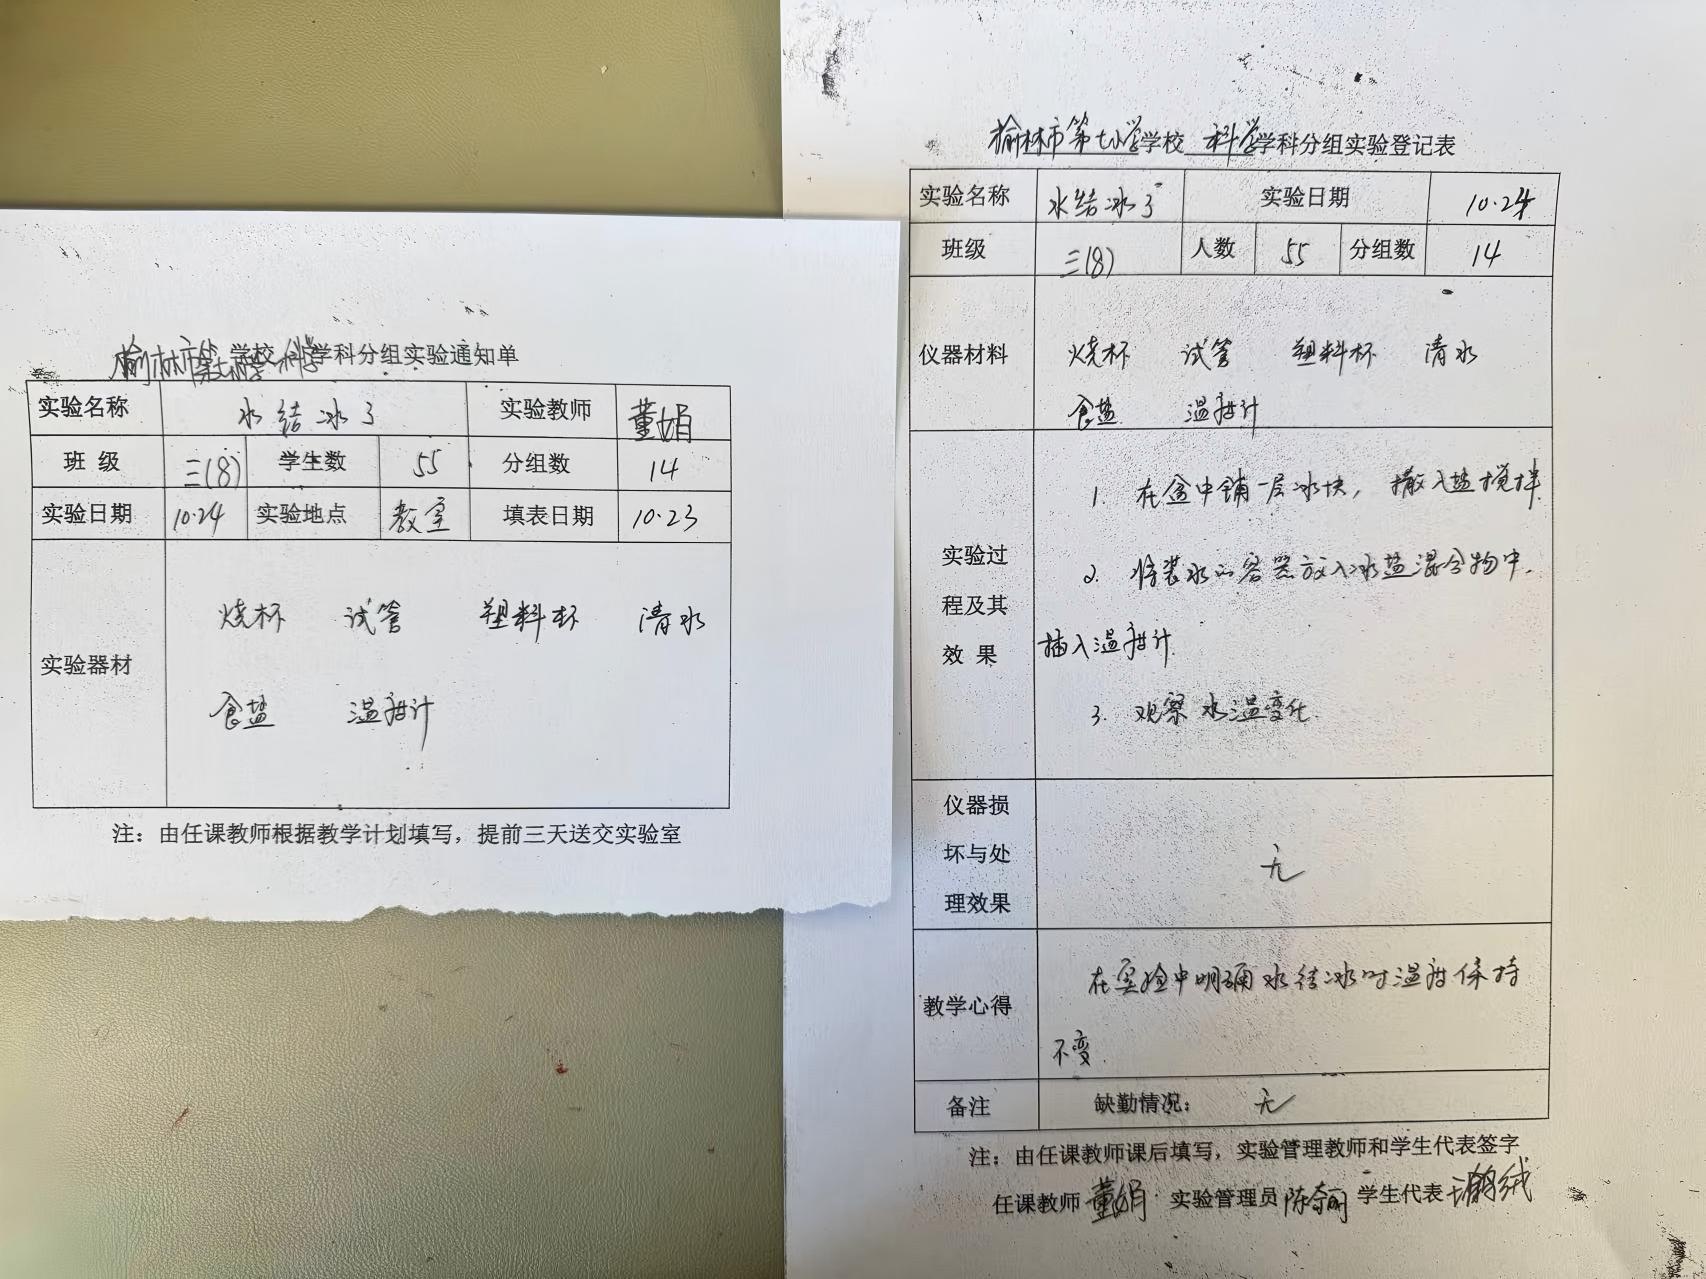 榆林市第七小学学校 科学学科分组实验通知单
实验名称 水结冰了 实验教师 董娟
班 级 三(8) 学生数 55 分组数 14
实验日期 10.24 实验地点 教室 填表日期 10.23
实验器材
烧杯 试管 塑料杯 清水
食盐 温度计
注：由任课教师根据教学计划填写，提前三天送交实验室
榆林市第七小学学校 科学学科分组实验登记表
实验名称 水结冰了 实验日期 10.24
班级 三(8) 人数 55 分组数 14
仪器材料 烧杯 试管 塑料杯 清水
食盐 温度计
实验过
程及其
效 果
1. 在盒中铺一层冰块，撒入盐搅拌
2. 将装水的容器放入冰盐混合物中，
插入温度计.
3. 观察水温变化.
仪器损
坏与处
理效果
无
教学心得
在实验中明确水结冰时温度保持
不变.
备注 缺勤情况： 无
注：由任课教师课后填写，实验管理教师和学生代表签字
任课教师 董娟 实验管理员 学生代表